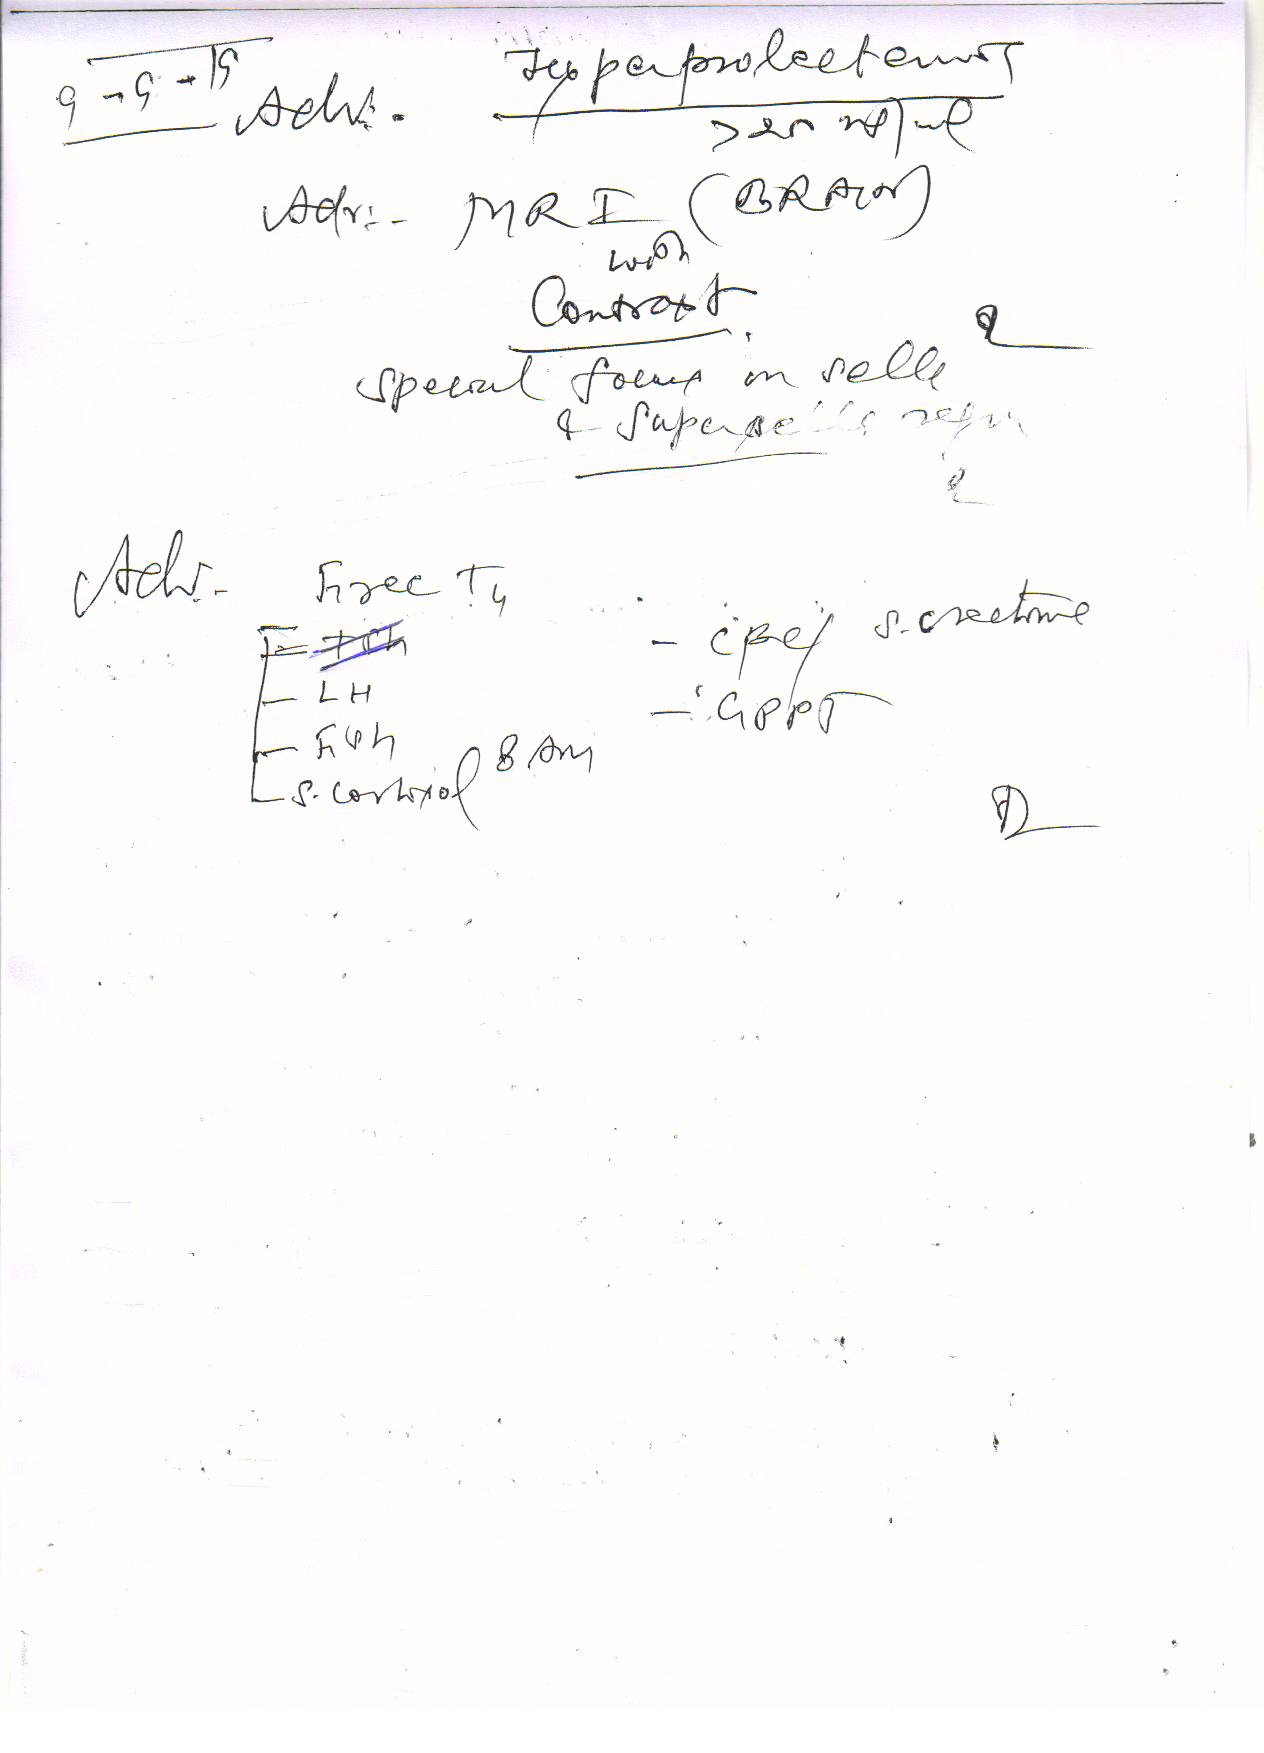 Adv.
Hyperprolactemia
Adv:- MRI (BRAIN)
with
Contrast
special focus in sella
& Supersella region
Adv.-
Free T4
- LH
- FSh
- S. Cortisol 8 Am
- CBC / S. creatinine
- GPPT